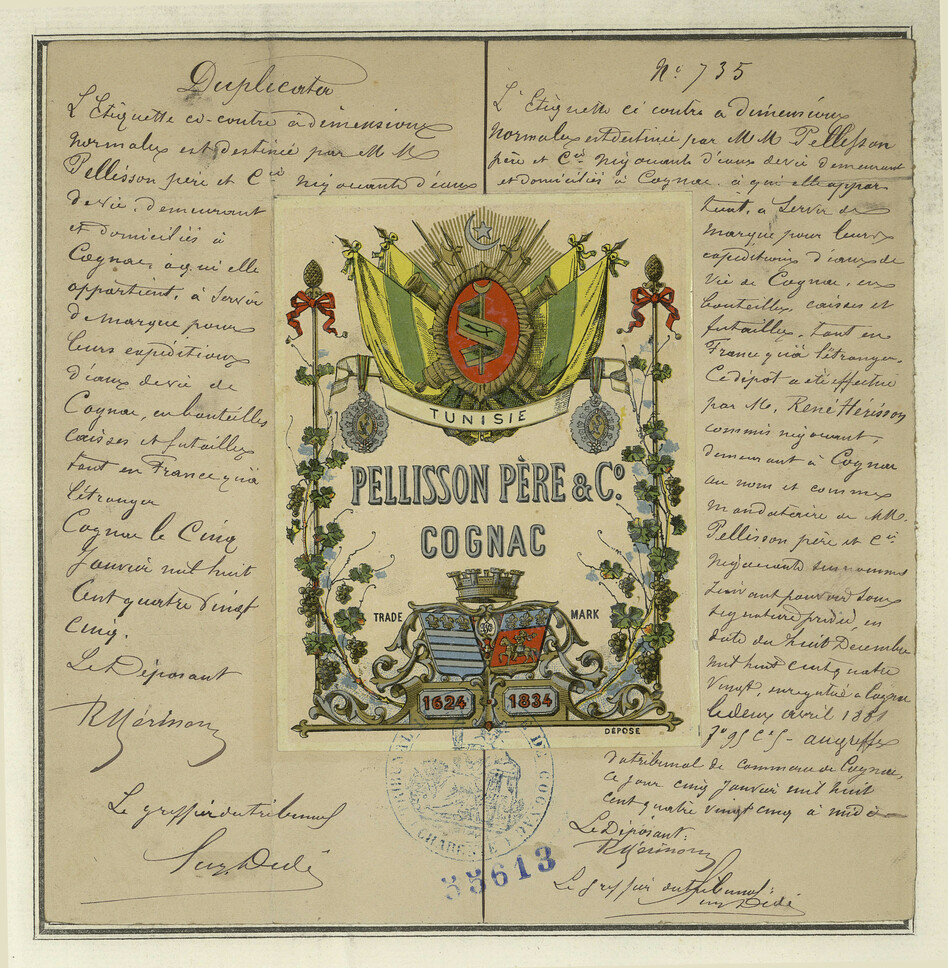 Duplicata
L'Etiquette ci-contre à dimensions
normales est destinée par M M
Pellisson père et Cie Négociants d'eaux
de vie, demeurant
et domiciliés à
Cognac, à qui elle
appartient, à servir
de marque pour
leurs expéditions
d'eaux de vie de
Cognac, en bouteilles
caisses et futailles
tant en France qu'à
l'étranger
Cognac le Cinq
Janvier mil huit
Cent quatre vingt
Cinq.
Le Déposant
RHérisson
Le greffier du tribunal
TUNISIE
PELLISSON PÈRE & Co.
COGNAC
TRADE MARK
1624 1834
DÉPOSÉ
TRIBUNAL DE COGNAC
CHARENTE
55613
No 735
L'Etiquette ci contre à dimensions
normales est destinée par M M Pellisson
père et Cie Négociants d'eaux de vie demeurant
et domiciliés à Cognac, à qui elle appar
tient, à servir de
marque pour leurs
expéditions d'eaux de
vie de Cognac, en
bouteilles, caisses et
futailles, tant en
France qu'à l'étranger.
Ce dépôt a été effectué
par M. René Hérisson
commis négociant,
demeurant à Cognac
au nom et comme
mandataire de MM.
Pellisson père et Cie
Négociants susnommés
suivant pouvoir sous
signature privée, en
date du huit Decembre
mil huit cent quatre
vingt, enregistré à Cognac
le deux avril 1881
fo 95 Co 5 - au greffe
du tribunal de commerce de Cognac,
ce jour cinq Janvier mil huit
cent quatre vingt cinq à midi
Le Déposant.
RHérisson
Le greffier du tribunal